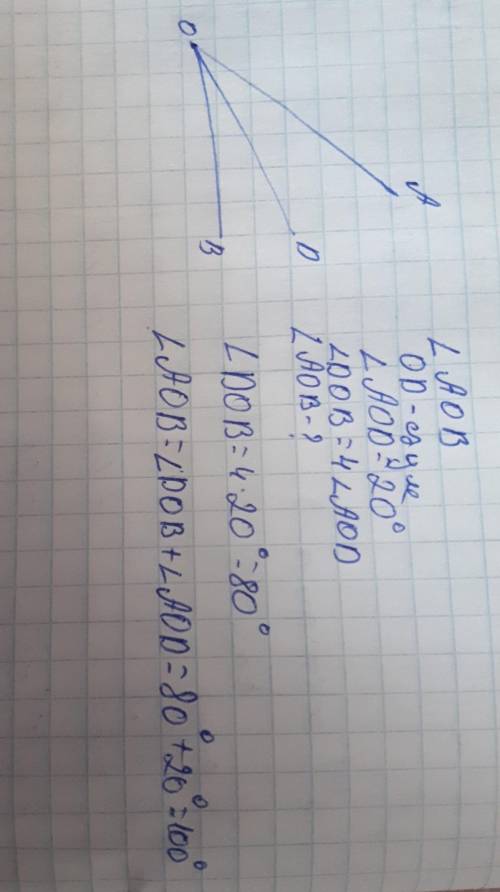 O
A
D
B
∠AOB
OD - сәуле
∠AOD = 20°
∠DOB = 4∠AOD
∠AOB - ?
∠DOB = 4·20° = 80°
∠AOB = ∠DOB + ∠AOD = 80° + 20° = 100°